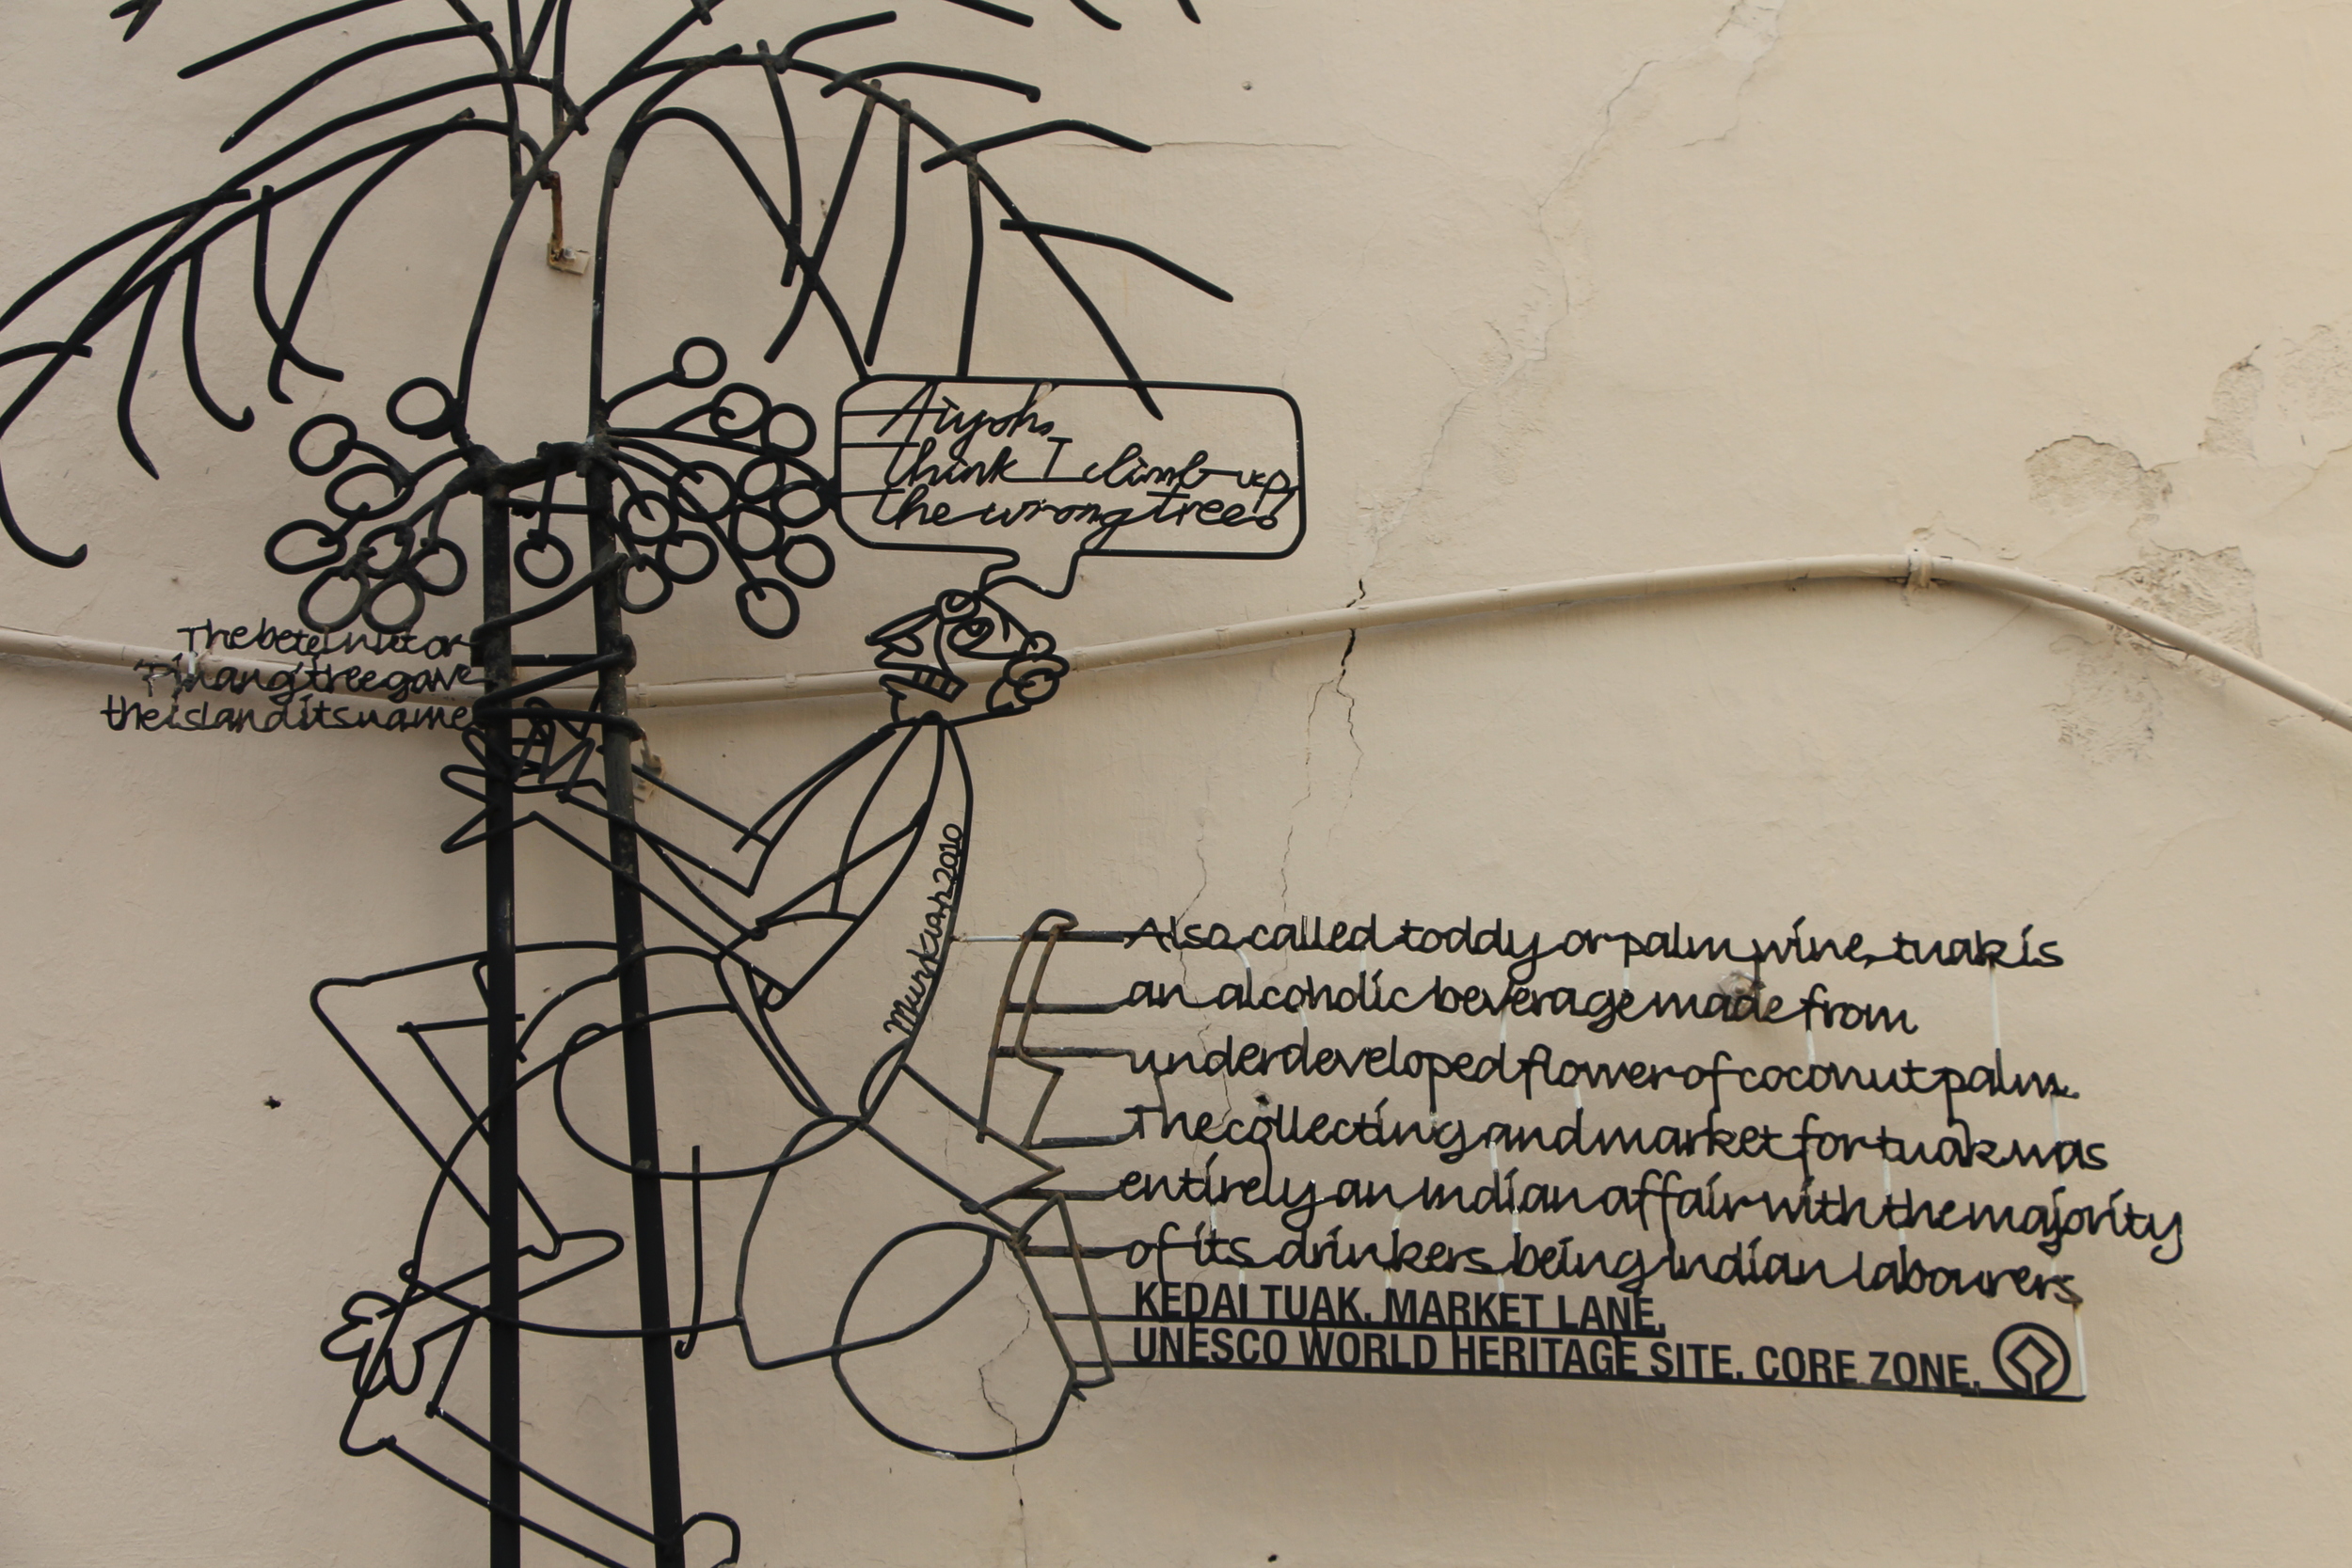 Aiyoh,
think I climb up
the wrong tree!
The betel nut or
'Pinang' tree gave
the island its name
Munkian 2010
Also called toddy or palm wine, tuak is
an alcoholic beverage made from
underdeveloped flower of coconut palm.
The collecting and market for tuak was
entirely an Indian affair with the majority
of its drinkers being Indian labourers
KEDAI TUAK, MARKET LANE,
UNESCO WORLD HERITAGE SITE, CORE ZONE.